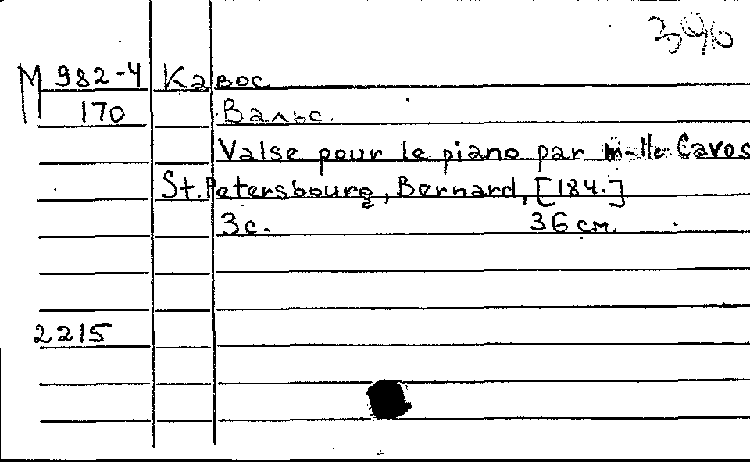 390
М 982-4 Кавос
170 Вальс.
Valse pour le piano par m-lle Cavos
St. Petersbourg, Bernard, [184.]
3с. 36 см.
2215